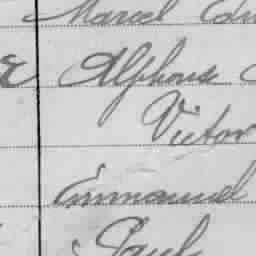 Marcel Edm
Alphonse
Victor
Emmanuel
Paul